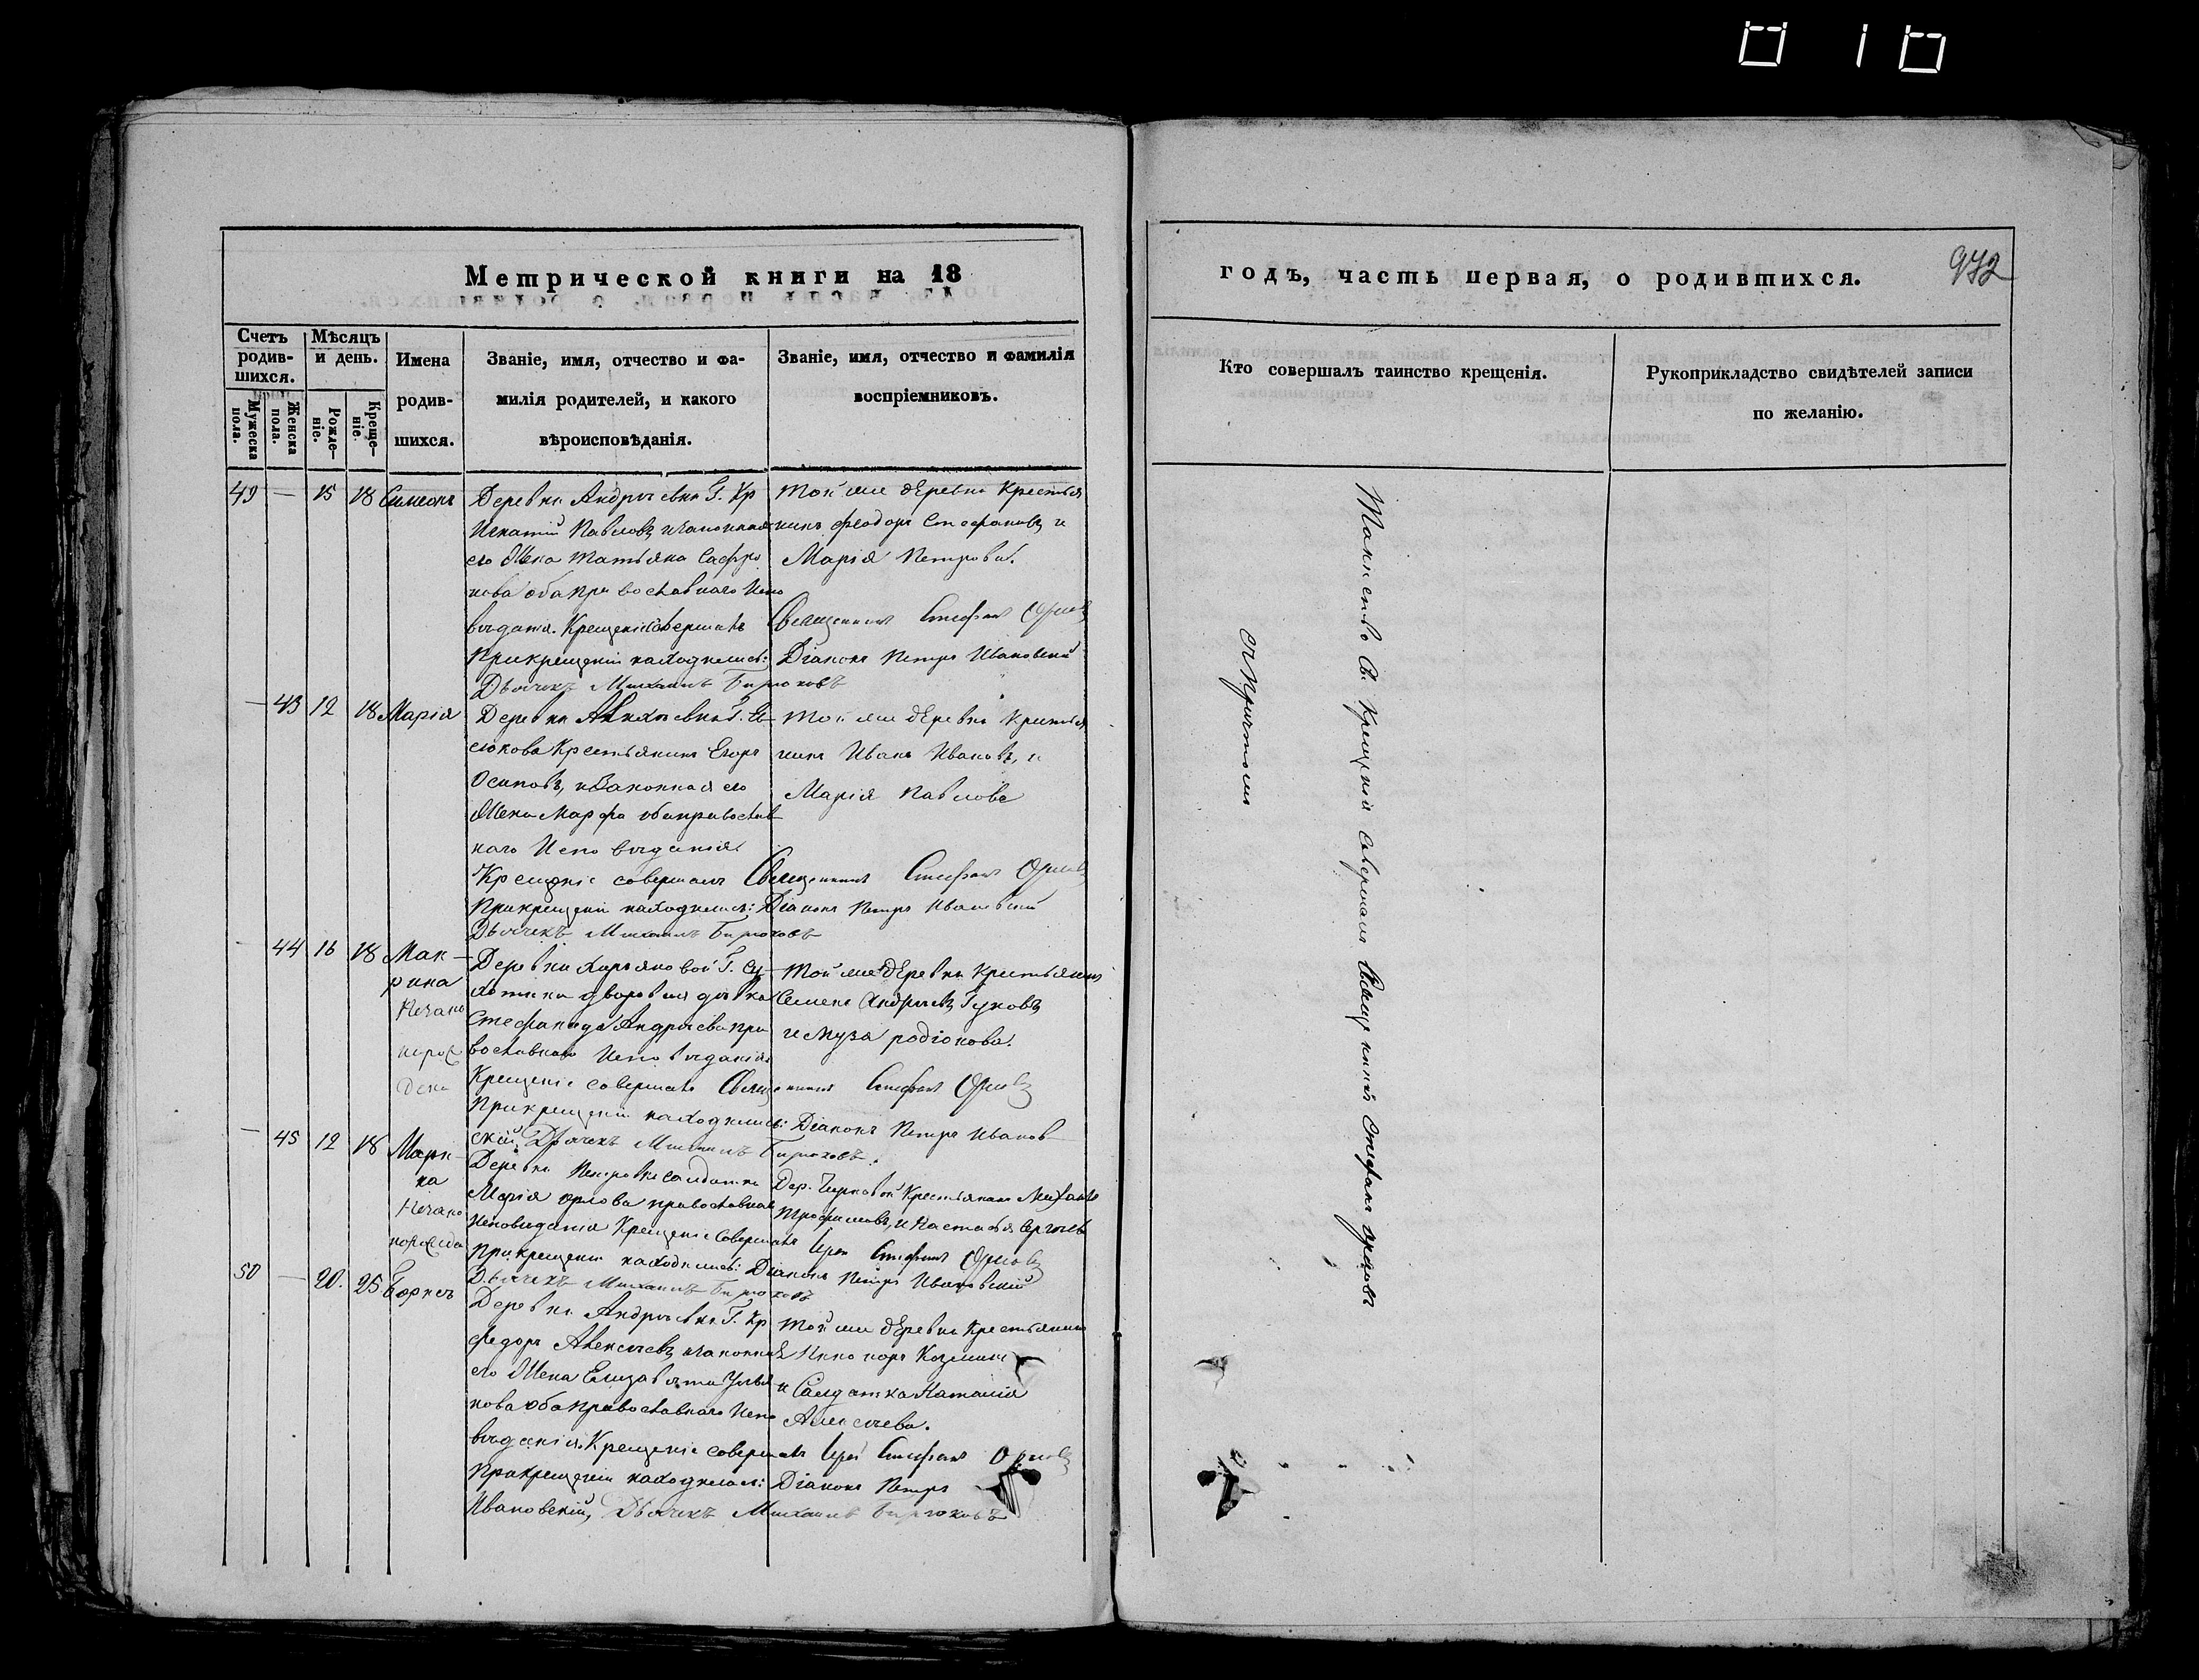 Метрической книги на 18
годъ, часть первая, о родившихся.
972
Счетъ родив-
шихся.
Мужеска пола.
Женска пола.
Мѣсяцъ
и день.
Рожде-
ніе.
Креще-
ніе.
Имена
родив-
шихся.
Званіе, имя, отчество и фа-
милія родителей, и какого
вѣроисповѣданія.
Званіе, имя, отчество и фамилія
воспріемниковъ.
Кто совершалъ таинство крещенія.
Рукоприкладство свидѣтелей записи
по желанію.
49 — 15 18 Симеонъ
Деревни Андреевки Г. Кр
Игнатій Павловъ, и законная
его Жена Татьяна Сафро
нова оба православнаго Испо
вѣданія. Крещеніе совершалъ
При крещеніи находились:
Дьячекъ Михаилъ Бирюковъ
Той же деревни Крестья
нинъ Феодоръ Стефановъ, и
Марія Петрова.
Священникъ Стефанъ Орловъ
Діаконъ Петръ Ивановскій
— 43 12 18 Марія
Крестьянинъ Егоръ
Осиповъ, и Законная его
Жена Марфа оба православ
наго Исповѣданія.
Крещеніе совершалъ Священникъ Стефанъ Орловъ
При крещеніи находились: Діаконъ Петръ Ивановскій
Дьячекъ Михаилъ Бирюковъ
Той же деревни Крестья
нинъ Иванъ Ивановъ, и
Марія Павлова
44 16 18 Мак-
рина
Незако
норож
дена
Деревни
дворовая дѣвка
Стефанида Андреева пра
вославнаго Исповѣданія
Крещеніе совершалъ Священникъ Стефанъ Орловъ
При крещеніи находились: Діаконъ Петръ Иванов
скій, Дьячекъ Михаилъ Бирюковъ.
Той же деревни Крестьянинъ
Семенъ Андреевъ Гуковъ
и Муза Родіонова.
— 45 12 18 Мари-
на
Незако
норожде
Деревни Петровки солдатка
Марія Орлова православнаго
Исповѣданія Крещеніе Совершалъ Іерей Стефанъ Орловъ
При крещеніи находились: Діаконъ Петръ Ивановскій
Дьячекъ Михаилъ Бирюковъ
Крестьянинъ Михаилъ
Трофимовъ, и Настасья Сергѣева
50 — 20. 25 Борисъ
Деревни Андреевки Г. Кр
Федоръ Алексѣевъ, и законная
его Жена Елизавета Улья
нова оба православнаго Испо
вѣданія. Крещеніе совершалъ Іерей Стефанъ Орловъ
При крещеніи находились: Діаконъ Петръ
Ивановскій, Дьячекъ Михаилъ Бирюковъ
Той же деревни Крестьянинъ
Никоноръ Козминъ
и Солдатка Наталія
Алексѣева.
Таинство Св. Крещенія совершалъ Священникъ Стефанъ Орловъ
съ Причтомъ